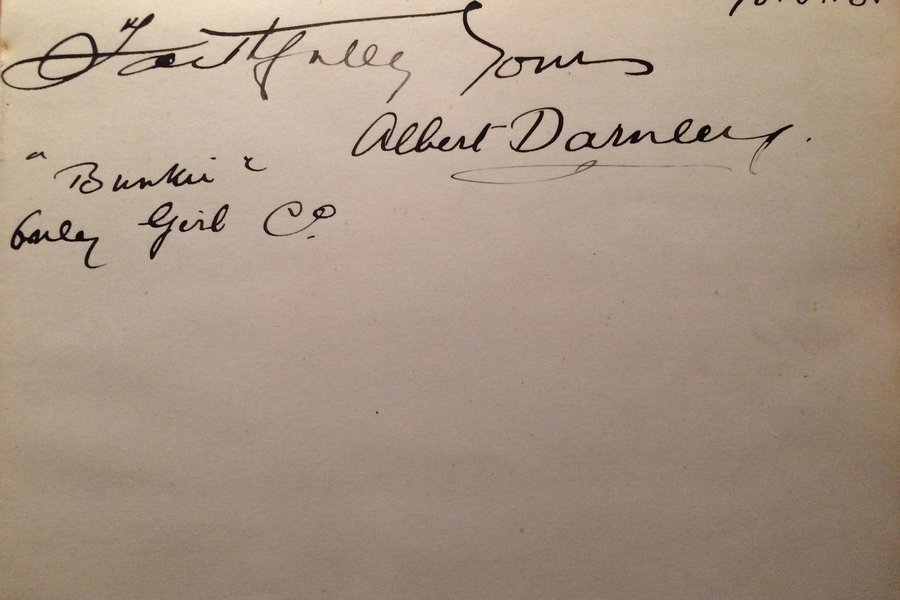 Faithfully Yours
Albert Darnley.
"Bunkie"
Only Girl Co.